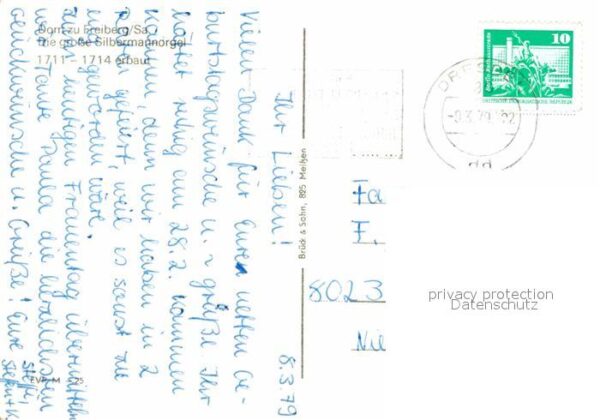 Dom zu Freiberg/Sa.
Die große Silbermannorgel
1711 – 1714 erbaut
8.3.79
Ihr Lieben!
Vielen Dank für Euren netten Ge-
burtstagswünsche u. -grüße. Ihr
könnt ruhig am 28.2. kommen
denn wir haben in 2
gefeiert, weil es sonst zu
geworden wäre.
zum heutigen Frauentag übermittele
Tante Paula die herzlichsten
Glückwünsche u. Grüße! Eure
EVP M -,25
Brück & Sohn, 825 Meißen
10
DEUTSCHE DEMOKRATISCHE REPUBLIK
DRES
-9.3.79
Fa
F.
8023
Nie
privacy protection
Datenschutz